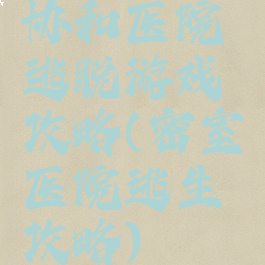 协和医院
逃脱游戏
攻略(密室
医院逃生
攻略)